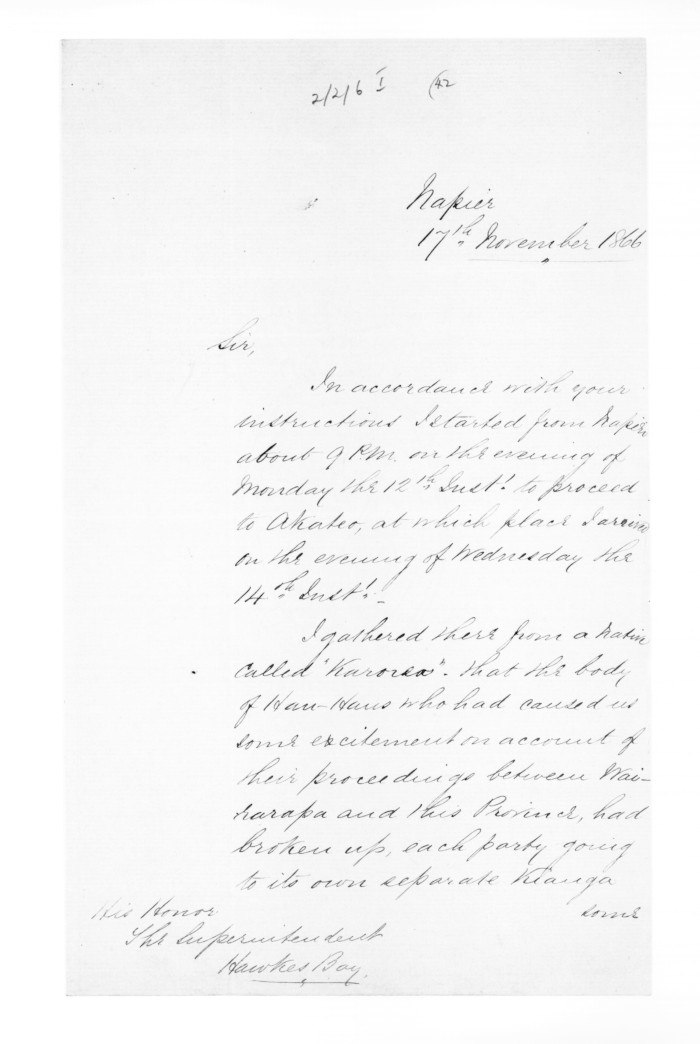 2/2/6 I (42
Napier
17th November 1866
Sir,
In accordance with your
instructions I started from Napier
about 9 P.M. on the evening of
Monday the 12th Inst! to proceed
to Akateo, at which place I arrived
on the evening of Wednesday the
14th Inst! -
I gathered there from a Native
called "Karorea" - that the body
of Hau-Haus who had caused us
some excitement on account of
their proceedings between Wai-
rarapa and this Province, had
broken up, each party going
to its own separate Kianga
some
His Honor
The Superintendent
Hawkes Bay.